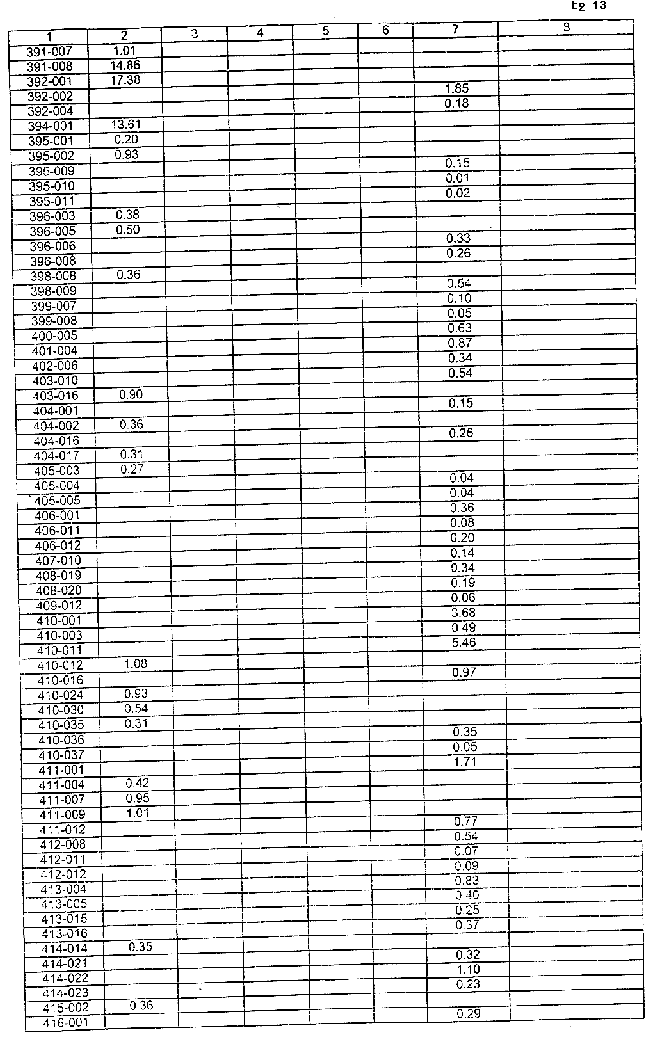 tg 13
1 2 3 4 5 6 7 8
391-007 1.01
391-008 14.86
392-001 17.38
392-002 1.85
392-004 0.18
394-001 13.61
395-001 0.20
395-002 0.93
395-009 0.15
395-010 0.01
395-011 0.02
396-003 0.38
396-005 0.50
396-006 0.33
396-008 0.26
398-008 0.36
398-009 0.54
399-007 0.10
399-008 0.05
400-005 0.63
401-004 0.87
402-006 0.34
403-010 0.54
403-016 0.90
404-001 0.15
404-002 0.36
404-016 0.26
404-017 0.31
405-003 0.27
405-004 0.04
405-005 0.04
406-001 0.36
406-011 0.08
406-012 0.20
407-010 0.14
408-019 0.34
408-020 0.19
409-012 0.06
410-001 3.68
410-003 0.49
410-011 5.46
410-012 1.08
410-016 0.97
410-024 0.93
410-030 0.54
410-035 0.31
410-036 0.35
410-037 0.05
411-001 1.71
411-004 0.42
411-007 0.95
411-009 1.01
411-012 0.77
412-008 0.54
412-011 0.07
412-012 0.09
413-004 0.83
413-005 0.40
413-015 0.25
413-016 0.37
414-014 0.35
414-021 0.32
414-022 1.10
414-023 0.23
415-002 0.36
416-001 0.29